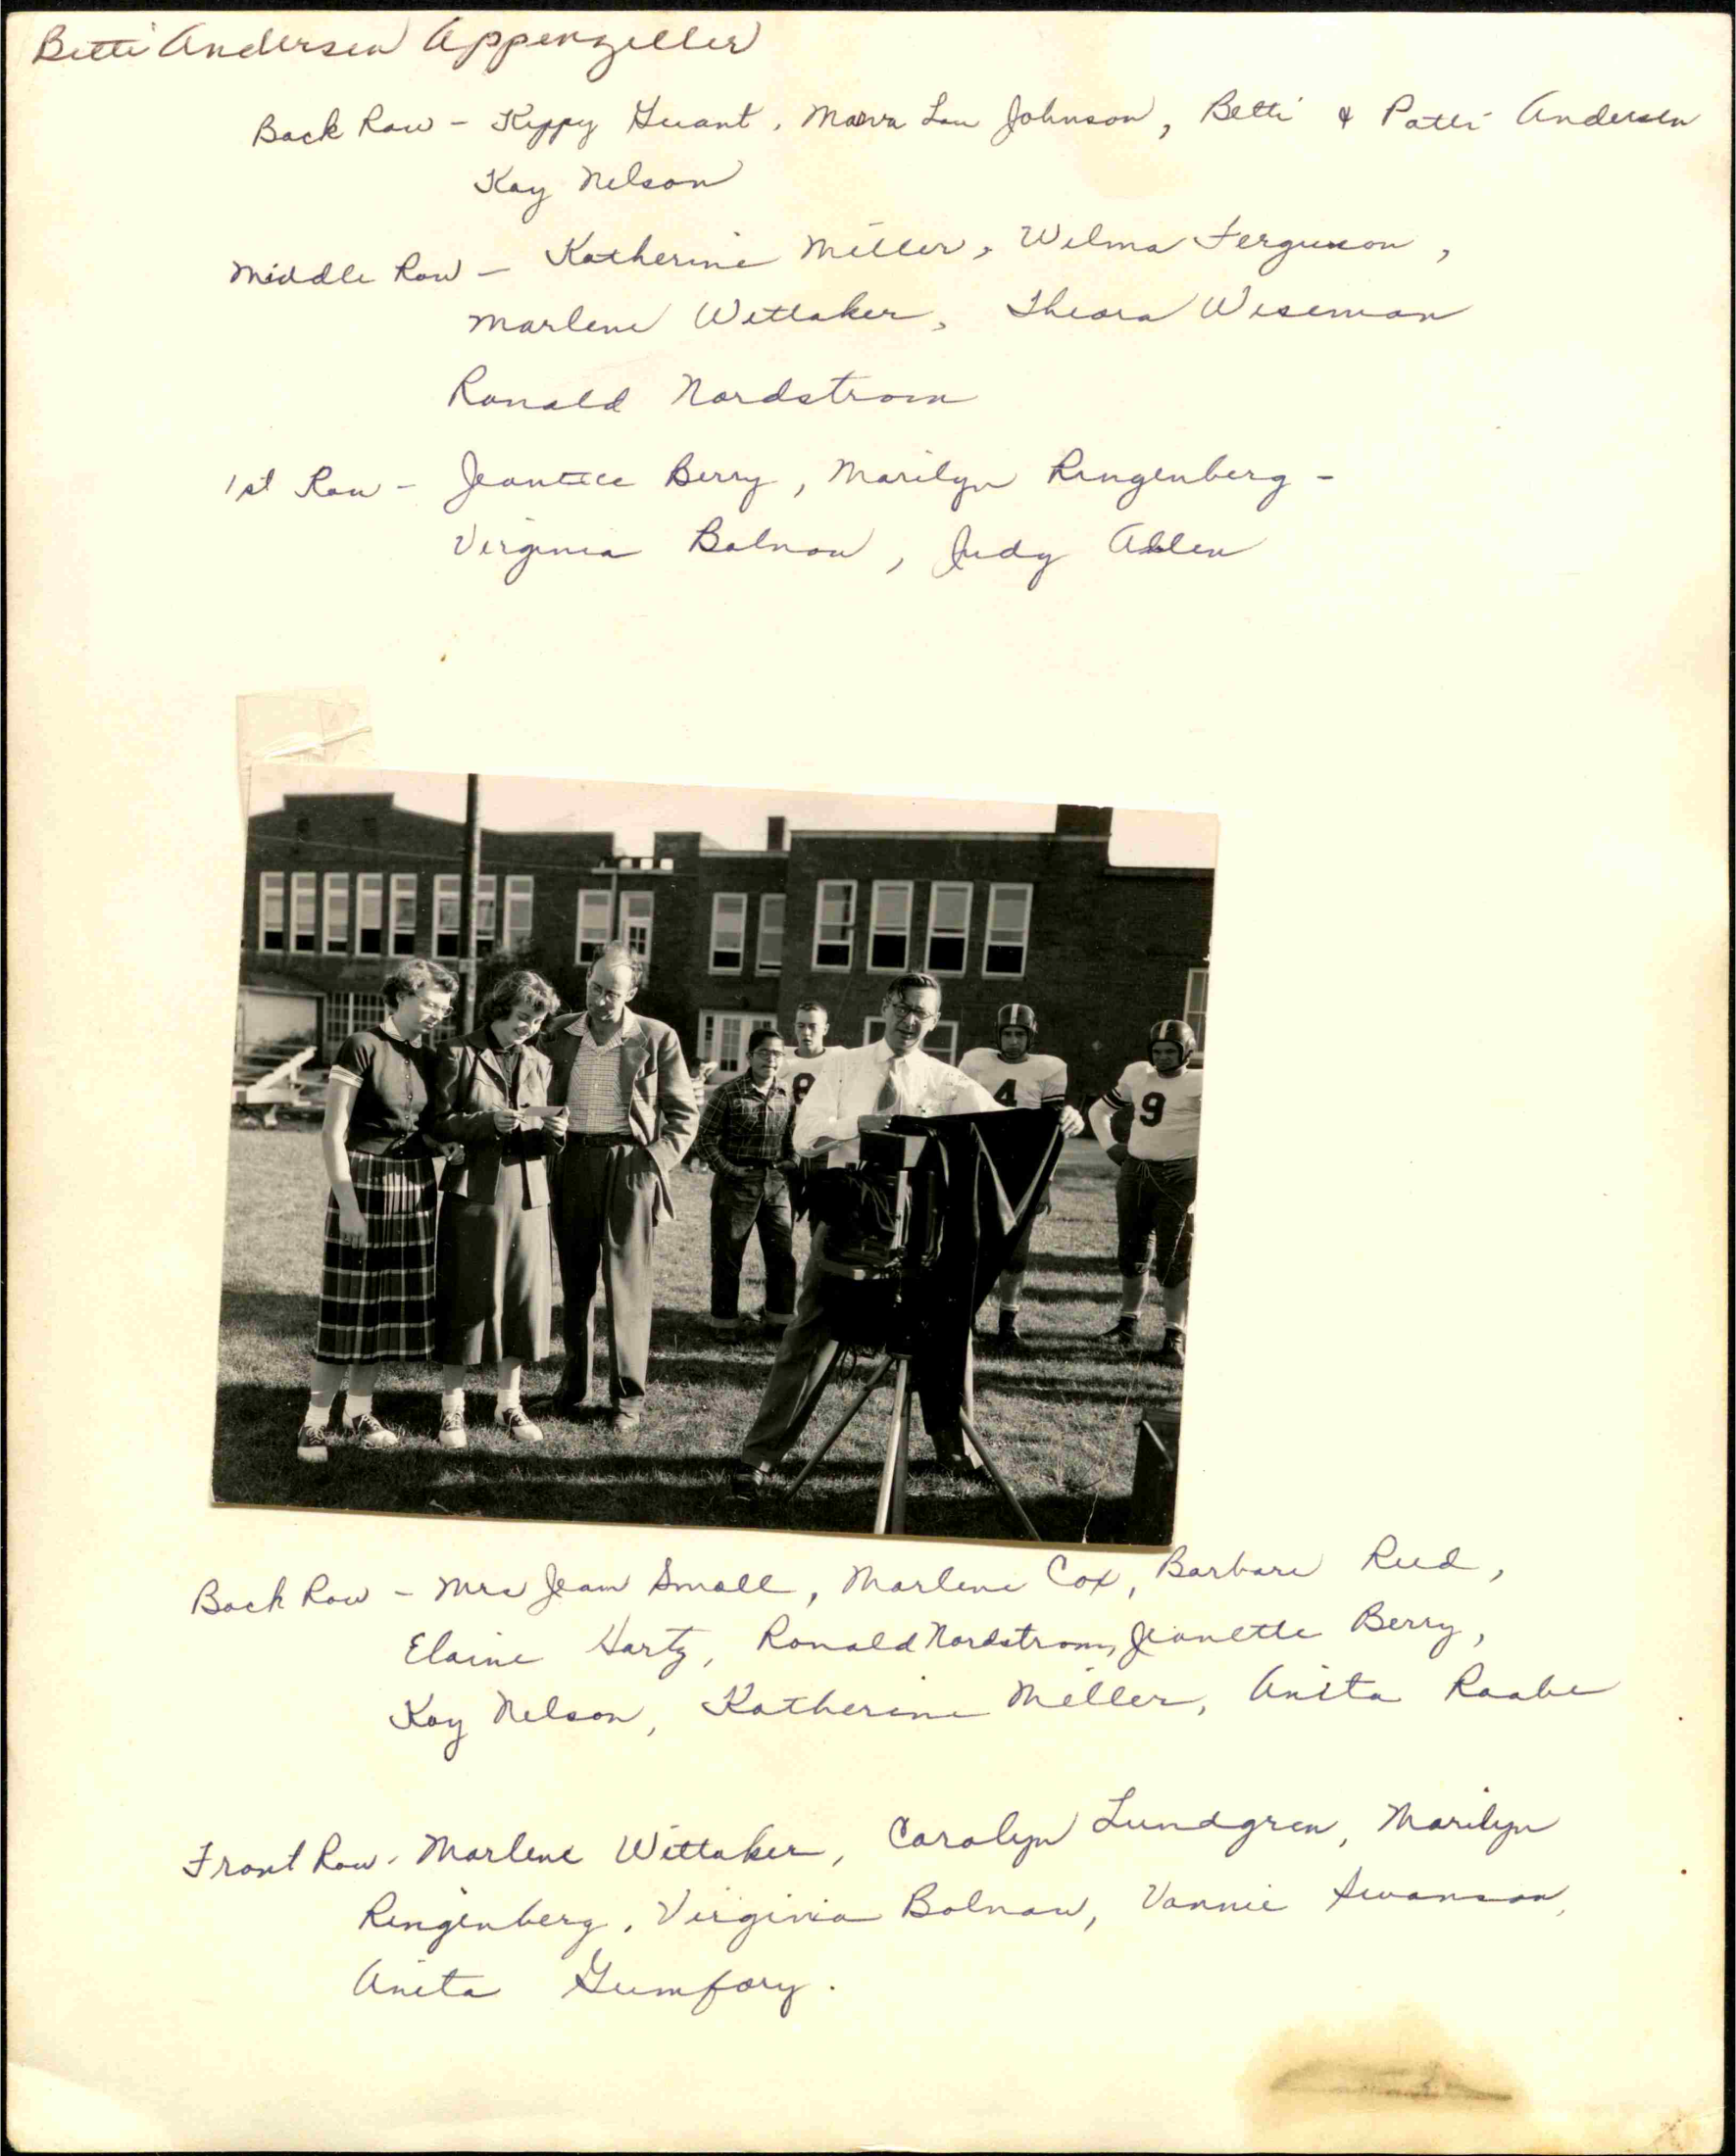 Betti Andersen Appenzeller
Back Row - Kippy Guant, Marva Lou Johnson, Betti & Patti Andersen
Kay Nelson
Middle Row - Katherine Miller, Wilma Ferguson,
Marlene Wittaker, Theora Wiseman
Ronald Nordstrom
1st Row - Jeanette Berry, Marilyn Ringenberg -
Virginia Bolnow, Judy Allen
8
4
9
Back Row - Mrs Jean Small, Marlene Cox, Barbara Reed,
Elaine Hartz, Ronald Nordstrom, Jeanette Berry,
Kay Nelson, Katherine Miller, Anita Raabe
Front Row - Marlene Wittaker, Carolyn Lundgren, Marilyn
Ringenberg, Virginia Bolnow, Vannie Swanson,
Anita Gumfory.